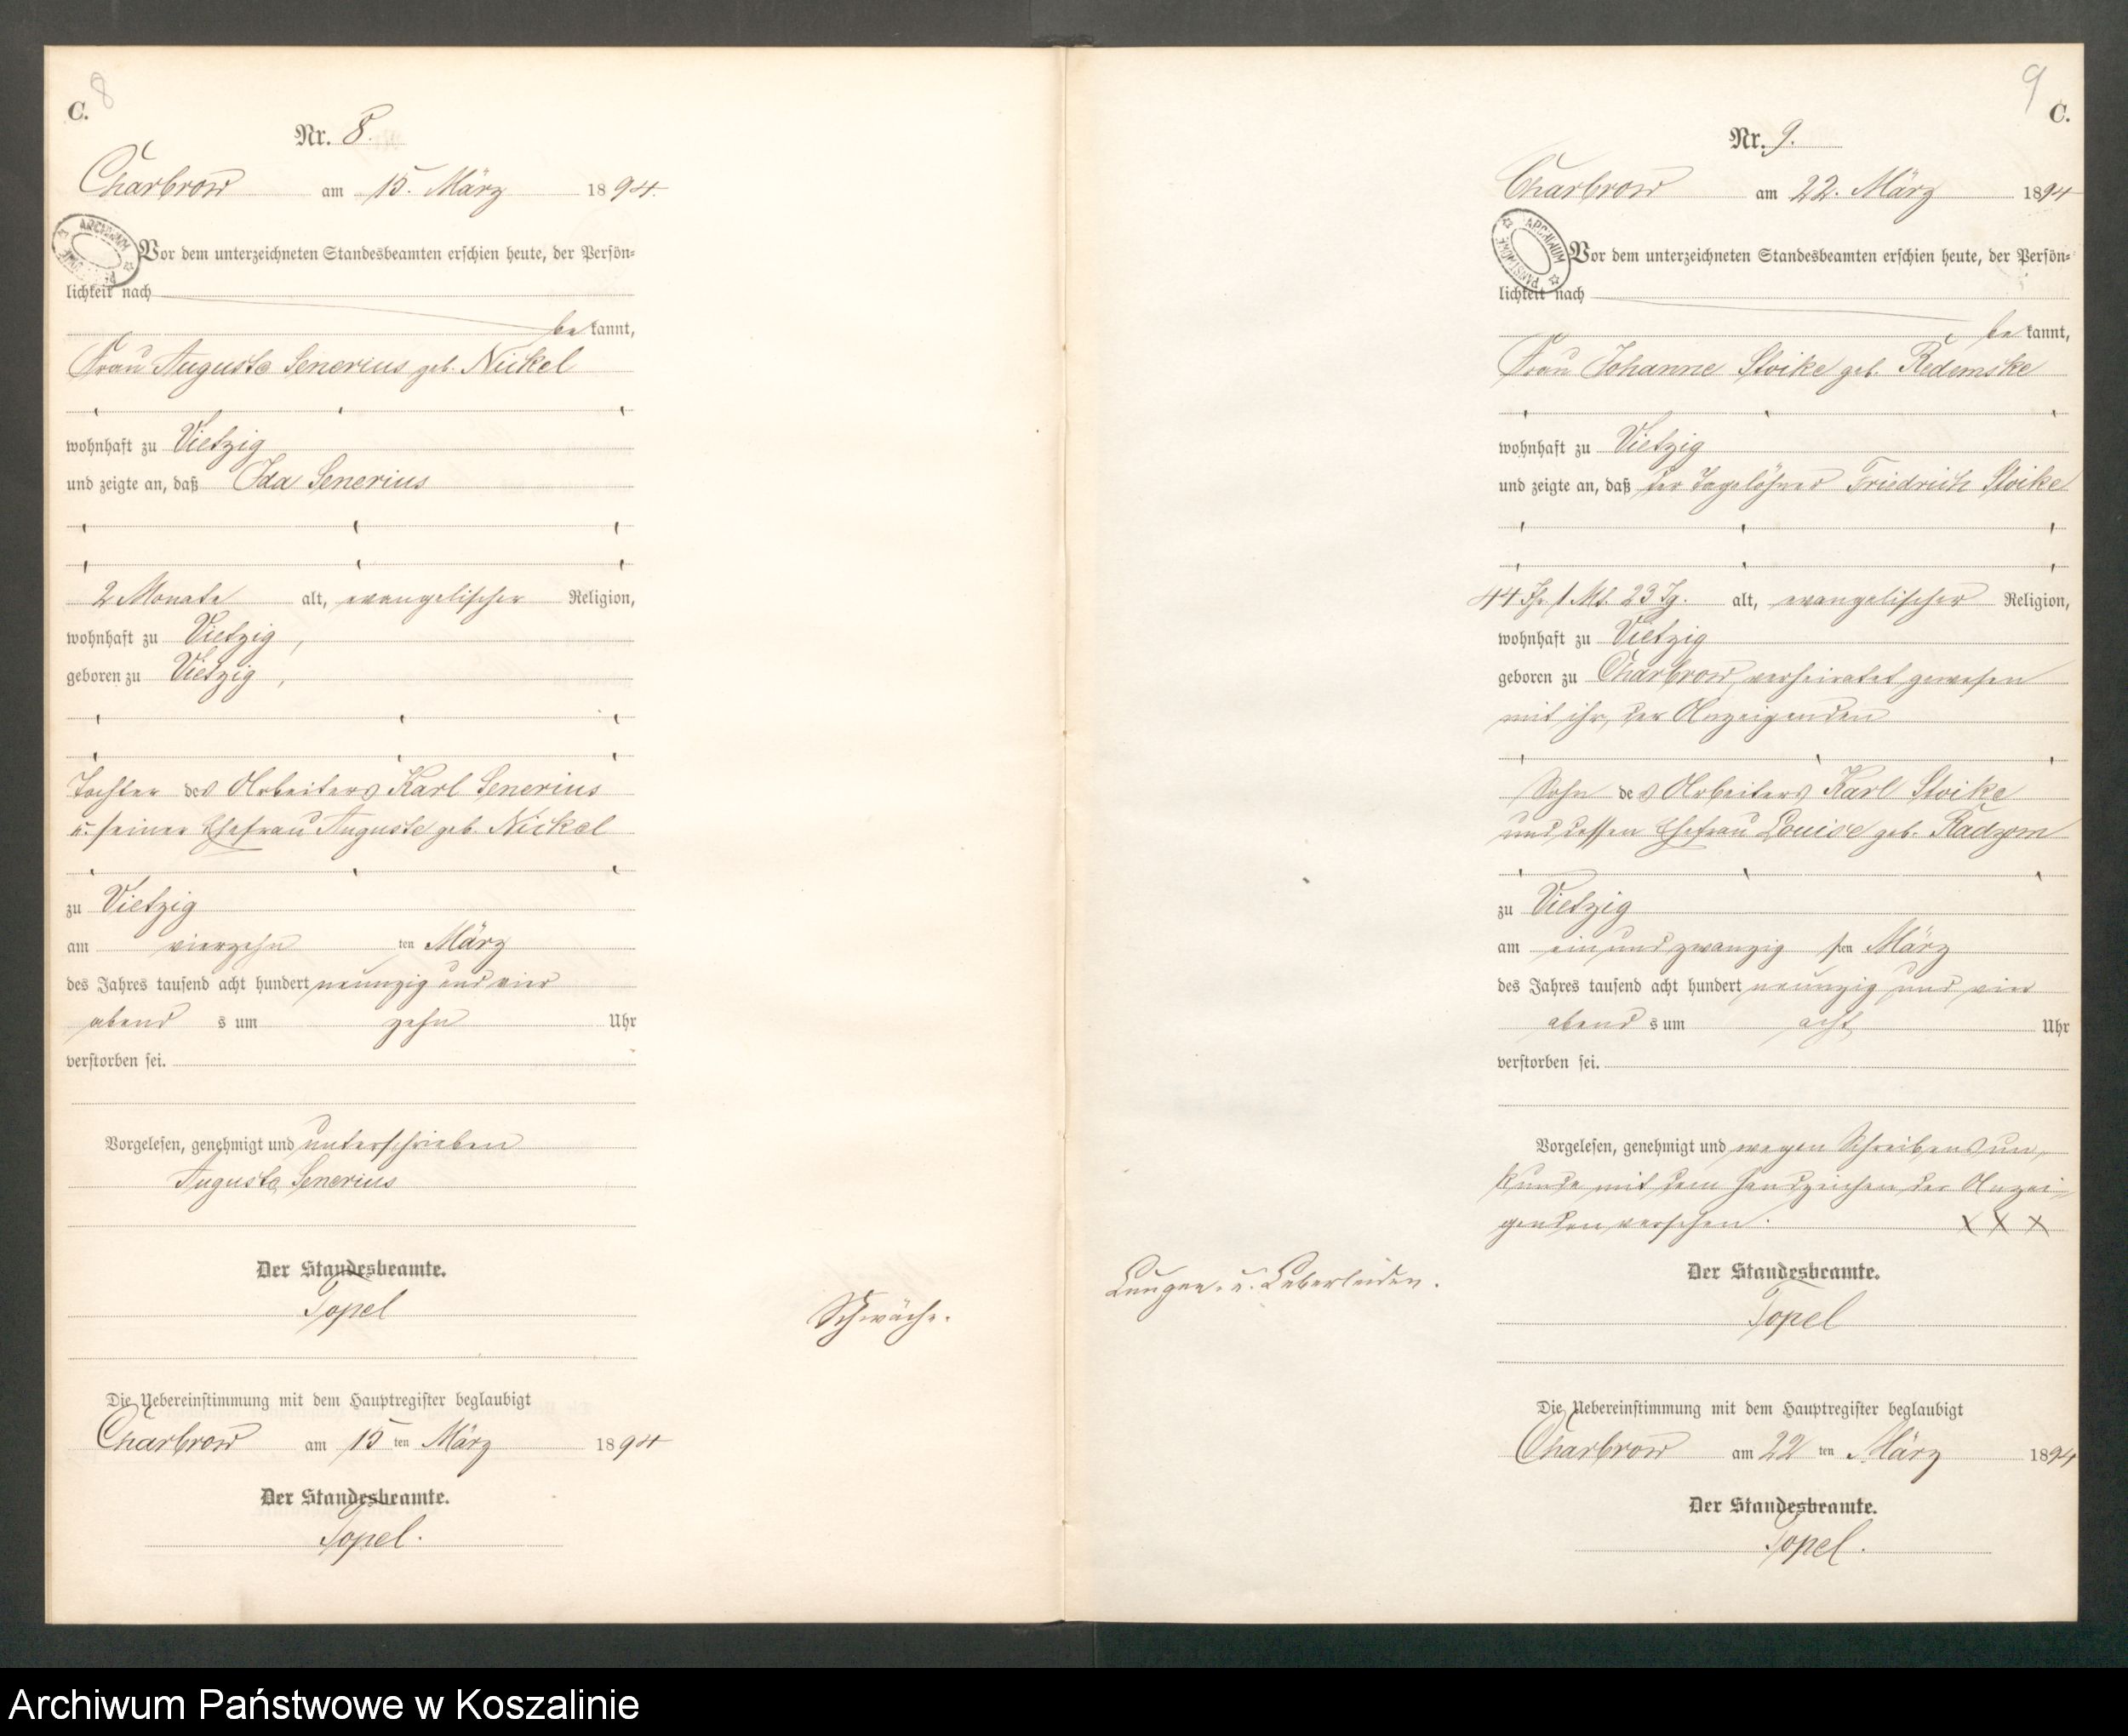 8
C.
Nr. 8.
Charbrow am 15. März 1894.
ARCHIWUM
Vor dem unterzeichneten Standesbeamten erschien heute, der Persön=
lichkeit nach
be kannt,
Frau Auguste Senerius geb. Nickel
wohnhaft zu Vietzig
und zeigte an, daß Ida Senerius
2 Monate alt, evangelischer Religion,
wohnhaft zu Vietzig,
geboren zu Vietzig,
Tochter des Arbeiters Karl Senerius
u. seiner Ehefrau Auguste geb. Nickel
zu Vietzig
am vierzehn ten März
des Jahres tausend acht hundert neunzig und vier
abend s um zehn Uhr
verstorben sei.
Vorgelesen, genehmigt und unterschrieben
Auguste Senerius
Der Standesbeamte.
Topel
Schwäche.
Die Uebereinstimmung mit dem Hauptregister beglaubigt
Charbrow am 15 ten März 1894
Der Standesbeamte.
Topel.
9
C.
Nr. 9.
Charbrow am 22. März 1894
ARCHIWUM PAŃSTWOWE
Vor dem unterzeichneten Standesbeamten erschien heute, der Persön=
lichkeit nach
be kannt,
Frau Johanne Stoike geb. Redemske
wohnhaft zu Vietzig
und zeigte an, daß der Tagelöhner Friedrich Stoike
44 Jr 1 Mt. 23 Tg. alt, evangelischer Religion,
wohnhaft zu Vietzig
geboren zu Charbrow, verheiratet gewesen
mit ihr, der Anzeigenden
Sohn des Arbeiters Karl Stoike
und dessen Ehefrau Louise geb. Radzom
zu Vietzig
am ein und zwanzig sten März
des Jahres tausend acht hundert neunzig und vier
abend s um acht Uhr
verstorben sei.
Vorgelesen, genehmigt und wegen Schreibensun=
kunde mit dem Handzeichen der Anzei=
genden versehen. X X X
Der Standesbeamte.
Topel
Lungen. u. Leberleiden.
Die Uebereinstimmung mit dem Hauptregister beglaubigt
Charbrow am 22 ten März 1894
Der Standesbeamte.
Topel.
Archiwum Państwowe w Koszalinie